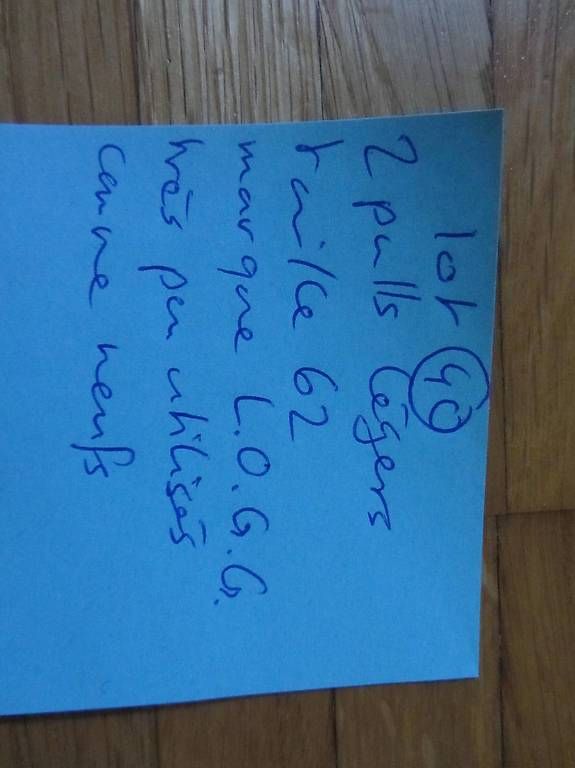 lot 40
2 pulls légers
taille 62
marque L.O.G.G.
très peu utilisés
comme neufs